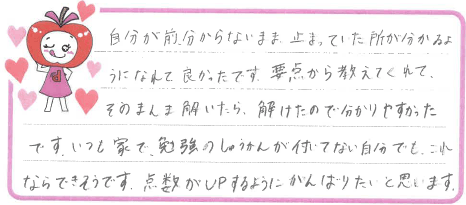 自分が前、分からないまま、止まっていた所が分かるよ
うになれて良かったです。要点から教えてくれて、
そのまんま解いたら、解けたので分かりやすかった
です。いつも家で、勉強のしゅうかんが付いてない自分でも、これ
ならできそうです。点数がUPするようにがんばりたいと思います。